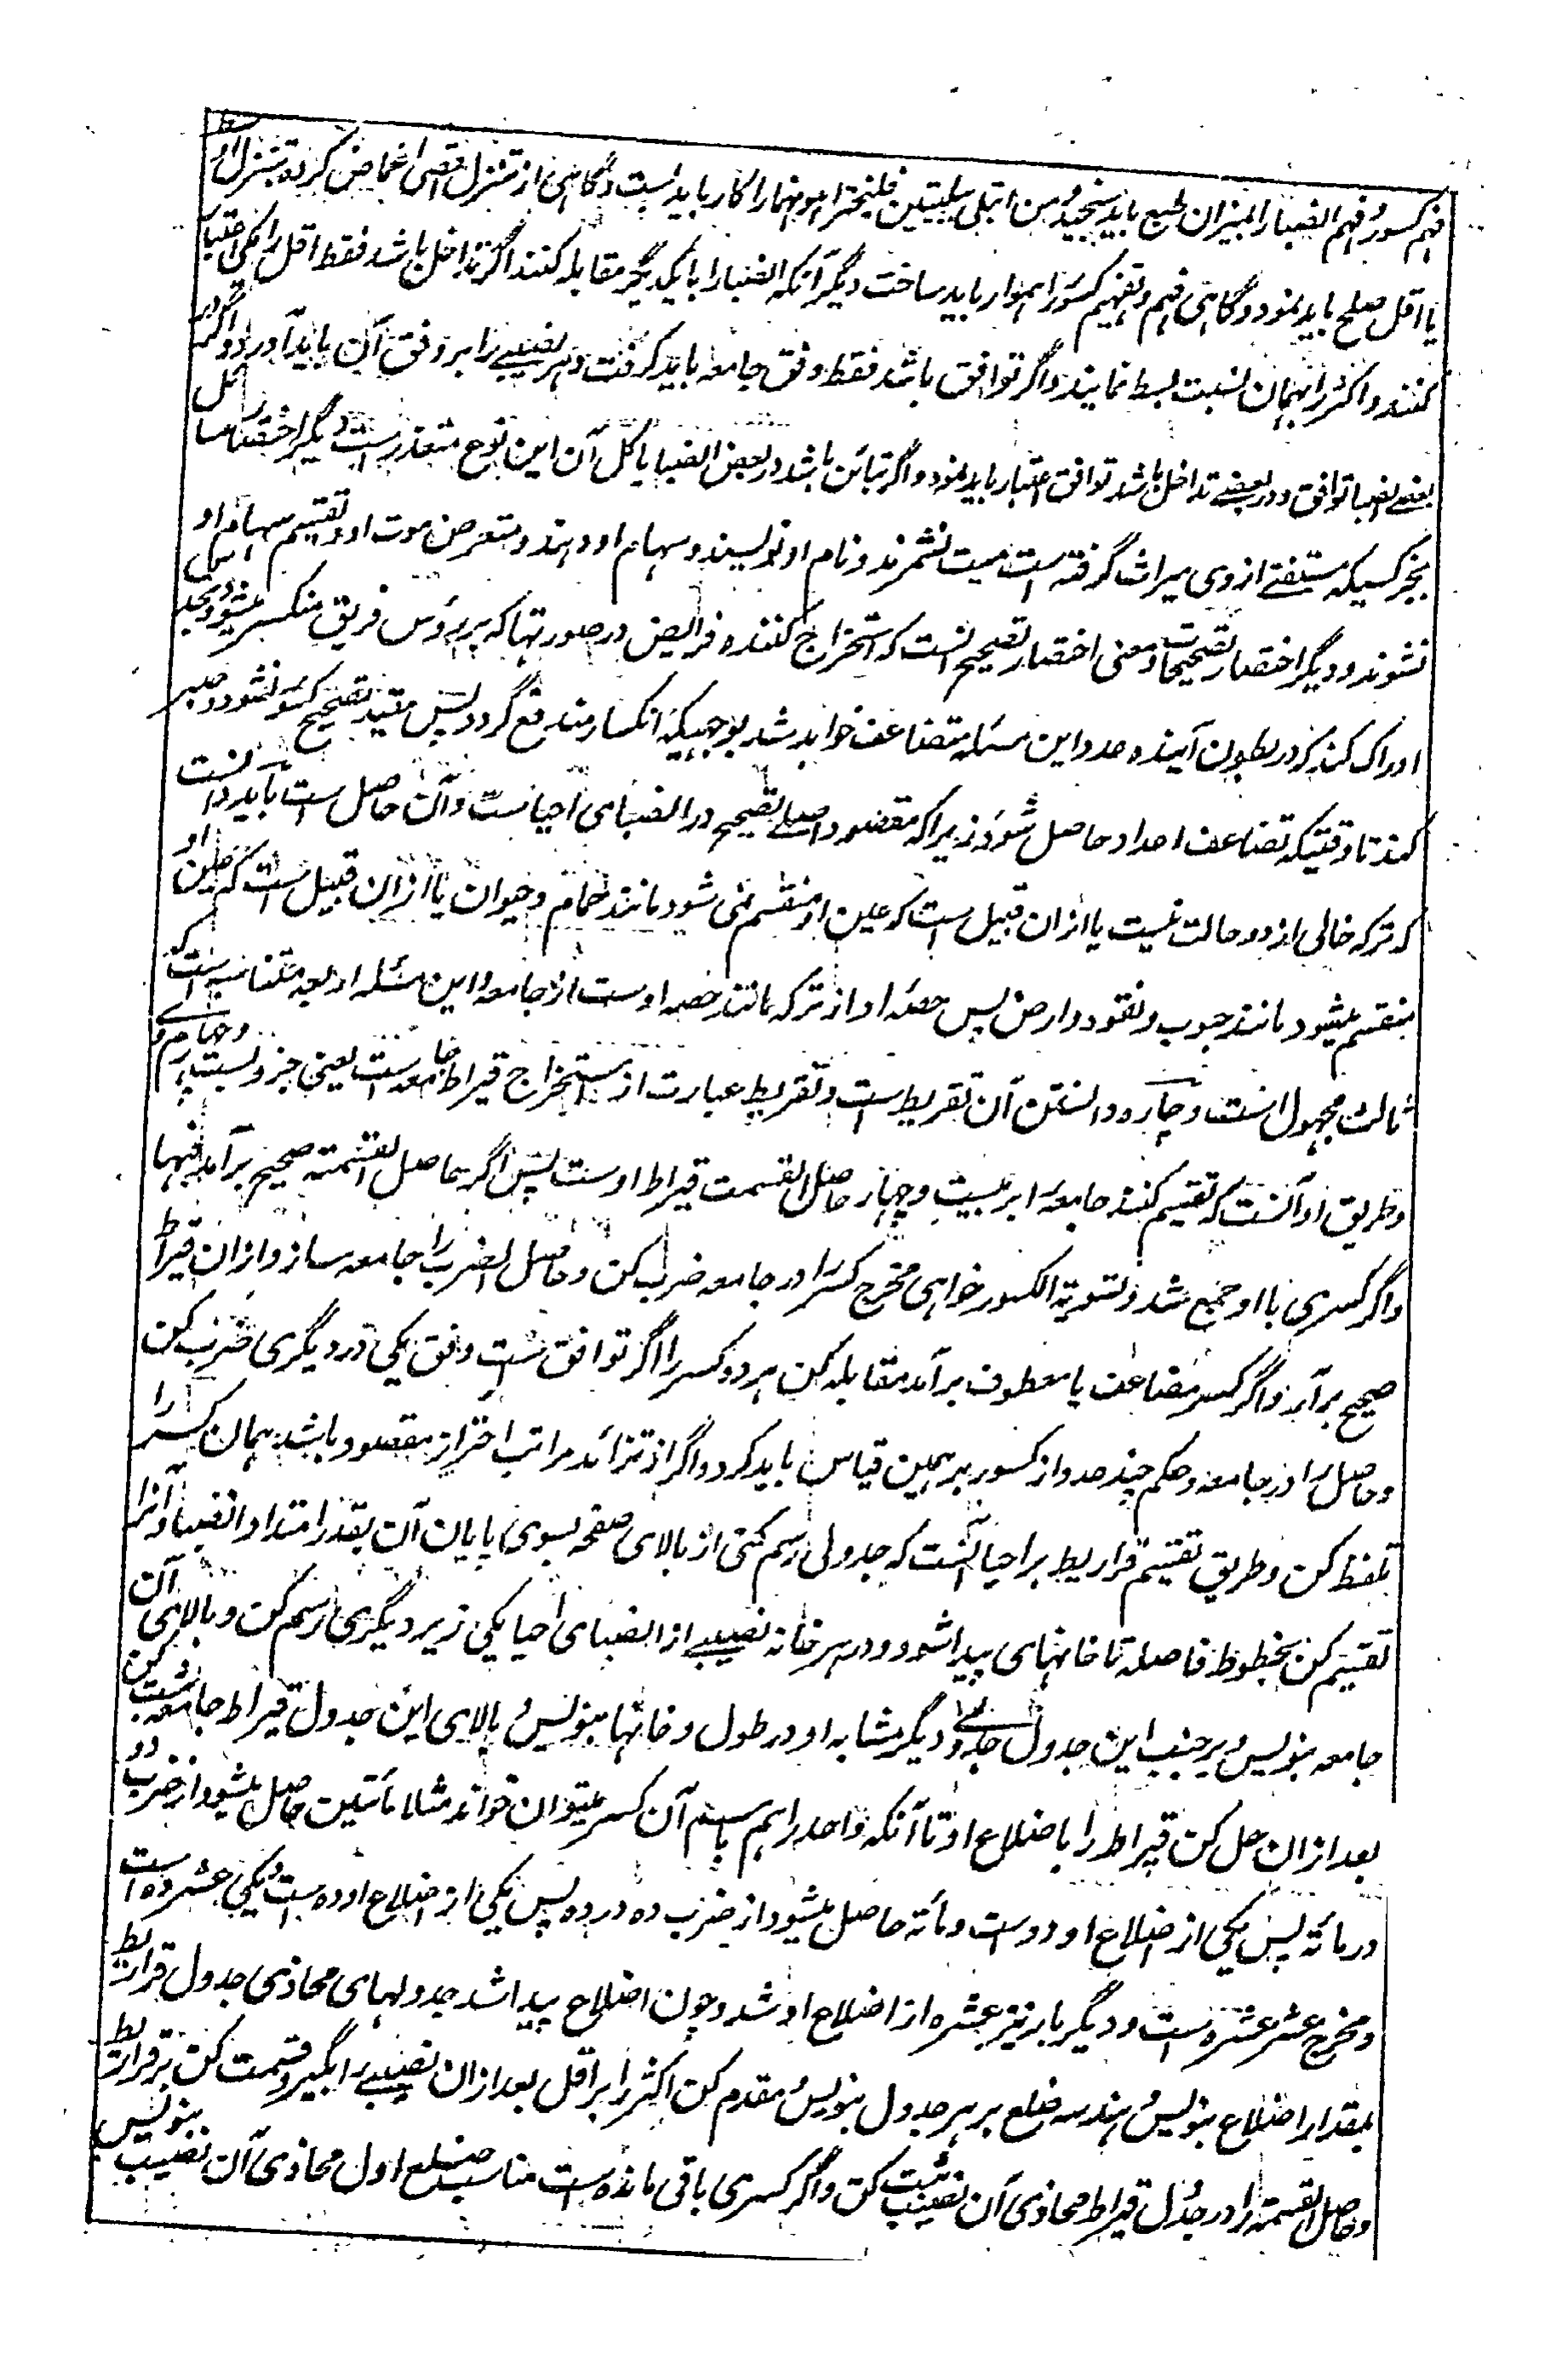 فهم کسور و فهم انصبا را بمیزان طبع باید سنجید و من ابتلی ببلیتین فلیختر اهونهما را کار باید بست و گاهی از تنزل اقصی اغماض کرده بتنزل اوسط
یا اقل صلح باید نمود و گاهی فهم و تفهیم کسور را هموار باید ساخت دیگر آنکه انصبا را با یکدیگر مقابله کنند اگر تداخل باشد فقط اقل را یکی اعتبار
کنند و اکثر را بهمان نسبت بسط نمایند و اگر توافق باشد فقط وفق جامعه باید گرفت و هر نصیبے را بر وفق آن باید آورد و اگر در
بعضے انصبا توافق و در بعضے تداخل باشد توافق اعتبار باید نمود و اگر تباین باشد در بعض انصبا یا کل آن این نوع متعذر است و دیگر اختصار مسائل
بجز کسیکه مستفتے از وی میراث گرفته است میت نشمرند و نام او نویسند و سهام او دهند و متعرض موت او و تقسیم سهام او
نشوند و دیگر اختصار تصحیحات و معنی اختصار تصحیح آنست که استخراج کننده فرایض در صورتها که بر رؤس فریق منکسر میشود و بحدس
ادراک کند که در بطون آینده عدد این مسئله متضاعف خواهد شد بوجهیکه انکسار مندفع گردد پس مقید تصحیح کسور نشود و صبر
کند تا وقتیکه تضاعف اعداد حاصل شود زیراکه مقصود اصلے تصحیح در انصبای احیاست و آن حاصل است باید دانست
که ترکه خالی از دو حالت نیست یا ازان قبیل است که عین او منقسم نمی شود مانند حمام و حیوان یا ازان قبیل است که عین او
منقسم میشود مانند حبوب و نقود و ارض پس حصه او از ترکه مانند حصه اوست از جامعه و این مسئله اربعه متناسبه است که
ثالث مجهول است و چاره دانستن آن تقریط است و تقریط عبارت از استخراج قیراط جامعه است یعنی جزو بست و چهارم وے
و طریق او آنست که تقسیم کنند جامعه را بر بیست و چهار حاصل القسمت قیراط اوست پس اگر حاصل القسمته صحیح برآمد فبها
و اگر کسری با او جمع شد و تسویة الکسور خواهی مخرج کسر را در جامعه ضرب کن و حاصل الضرب را جامعه ساز و ازان قیراط
صحیح برآید و اگر کسر مضاعف یا معطوف برآمد مقابله کن هر دو کسر را اگر توافق است وفق یکی در دیگری ضرب کن
و حاصل را در جامعه و حکم چند عدد از کسور بر همین قیاس باید کرد و اگر از تزائد مراتب احتراز مقصود باشد همان کسر را
تلفظ کن و طریق تقسیم قراریط بر احیا آنست که جدولی رسم کنی از بالای صفحه بسوی پایان آن بقدر امتداد انصبا و آنرا
تقسیم کن بخطوط فاصله تا خانهای پیدا شود و در هر خانه نصیبے از انصبای احیا یکی زیر دیگری رسم کن و بالای آن
جامعه بنویس و بر جنب این جدول جدولے دیگر مشابه او در طول و خانها بنویس و بالای این جدول قیراط جامعه ثبت کن
بعد ازان حل کن قیراط را باضلاع او تا آنکه واحد را هم باسم آن کسر میتوان خواند مثلا مأتین حاصل میشود از ضرب دو
در مائة پس یکی از اضلاع او دو است و مائة حاصل میشود از ضرب ده در ده پس یکی از اضلاع او ده است و یکی عشر ده است
و مخرج عشر عشره است و دیگر بار نیز عشره از اضلاع او شد و چون اضلاع پیدا شد جدولهای محاذی جدول قراریط
بمقدار اضلاع بنویس و هندسه ضلع بر هر جدول بنویس و مقدم کن اکثر را بر اقل بعد ازان نصیبے را بگیر و قسمت کن بر قراریط
و حاصل القسمته را در جدول قیراط محاذی آن نصیب ثبت کن و اگر کسری باقی مانده است مناسب ضلع اول محاذی آن نصیب بنویس